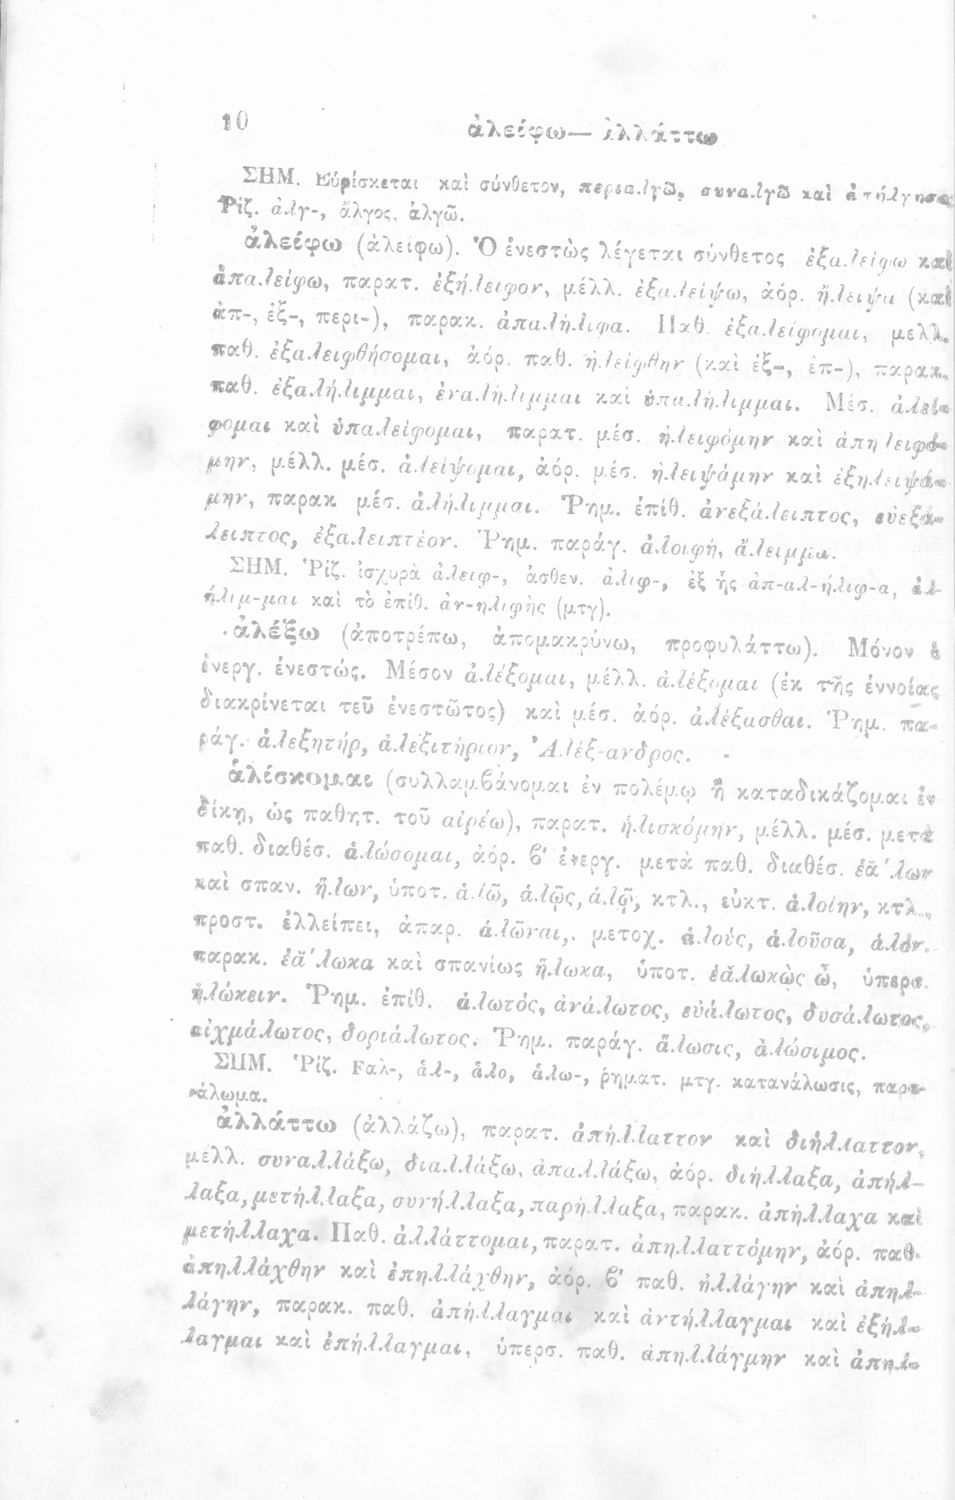 10
ἀλείφω— ἀλλάττω
ΣΗΜ. Εὑρίσκεται καὶ σύνθετον, περιαλγῶ, συναλγῶ καὶ ἀπήλγησα.
Ῥίζ. ἀλγ-, ἄλγος, ἀλγῶ.
ἀλείφω (ἀλείφω). Ὁ ἐνεστὼς λέγεται σύνθετος ἐξαλείφω καὶ
ἀπαλείφω, παρατ. ἐξήλειφον, μέλλ. ἐξαλείψω, ἀόρ. ἤλειψα (καὶ
ἀπ-, ἐξ-, περι-), παρακ. ἀπαλήλιφα. Παθ. ἐξαλείφομαι, μελλ.
παθ. ἐξαλειφθήσομαι, ἀόρ. παθ. ἠλείφθην (καὶ ἐξ-, ἐπ-), παρακ.
παθ. ἐξαλήλιμμαι, ἐναλήλιμμαι καὶ ὑπαλήλιμμαι. Μέσ. ἀλεί-
φομαι καὶ ὑπαλείφομαι, παρατ. μέσ. ἠλειφόμην καὶ ἀπηλειφό-
μην, μέλλ. μέσ. ἀλείψομαι, ἀόρ. μέσ. ἠλειψάμην καὶ ἐξηλειψά-
μην, παρακ μέσ. ἀλήλιμμαι. Ῥημ. ἐπίθ. ἀνεξάλειπτος, εὐεξά-
λειπτος, ἐξαλειπτέον. Ῥημ. παράγ. ἀλοιφή, ἄλειμμα.
ΣΗΜ. Ῥίζ. ἰσχυρὰ ἀλειφ-, ἀσθεν. ἀλιφ-, ἐξ ἧς ἀπ-αλ-ήλιφ-α, ἀλ-
ήλιμ-μαι καὶ τὸ ἐπίθ. ἀν-ηλιφὴς (μτγ).
ἀλέξω (ἀποτρέπω, ἀπομακρύνω, προφυλάττω). Μόνον ὁ
ἐνεργ. ἐνεστώς. Μέσον ἀλέξομαι, μέλλ. ἀλέξομαι (ἐκ τῆς ἐννοίας
διακρίνεται τοῦ ἐνεστῶτος) καὶ μέσ. ἀόρ. ἀλέξασθαι. Ῥημ. πα-
ράγ. ἀλεξητήρ, ἀλεξιτήριον, Ἀλέξ-ανδρος.
ἁλίσκομαι (συλλαμβάνομαι ἐν πολέμῳ ἢ καταδικάζομαι ἐν
δίκῃ, ὡς παθητ. τοῦ αἱρέω), παρατ. ἡλισκόμην, μέλλ. μέσ. μετὰ
παθ. διαθέσ. ἁλώσομαι, ἀόρ. β' ἐνεργ. μετὰ παθ. διαθέσ. ἑᾱ́λων
καὶ σπαν. ἥλων, ὑποτ. ἁλῶ, ἁλῷς, ἁλῷ, κτλ., εὐκτ. ἁλοίην, κτλ.,
προστ. ἐλλείπει, ἀπαρ. ἁλῶναι, μετοχ. ἁλούς, ἁλοῦσα, ἁλόν.
παρακ. ἑᾱ́λωκα καὶ σπανίως ἥλωκα, ὑποτ. ἑαλωκὼς ὦ, ὑπερσ.
ἡλώκειν. Ῥημ. ἐπίθ. ἁλωτός, ἀνάλωτος, εὐάλωτος, δυσάλωτος,
αἰχμάλωτος, δοριάλωτος. Ῥημ. παράγ. ἅλωσις, ἁλώσιμος.
ΣΗΜ. Ῥίζ. Fαλ-, ἁλ-, ἁλο, ἁλω-, ῥηματ. μτγ. κατανάλωσις, παρα-
νάλωμα.
ἀλλάττω (ἀλλάζω), παρατ. ἀπήλλαττον καὶ διήλλαττον,
μέλλ. συναλλάξω, διαλλάξω, ἀπαλλάξω, ἀόρ. διήλλαξα, ἀπήλ-
λαξα, μετήλλαξα, συνήλλαξα, παρήλλαξα, παρακ. ἀπήλλαχα καὶ
μετήλλαχα. Παθ. ἀλλάττομαι, παρατ. ἀπηλλαττόμην, ἀόρ. παθ.
ἀπηλλάχθην καὶ ἐπηλλάχθην, ἀόρ. β' παθ. ἠλλάγην καὶ ἀπηλ-
λάγην, παρακ. παθ. ἀπήλλαγμαι καὶ ἀντήλλαγμαι καὶ ἐξήλ-
λαγμαι καὶ ἐπήλλαγμαι, ὑπερσ. παθ. ἀπηλλάγμην καὶ ἀπηλ-